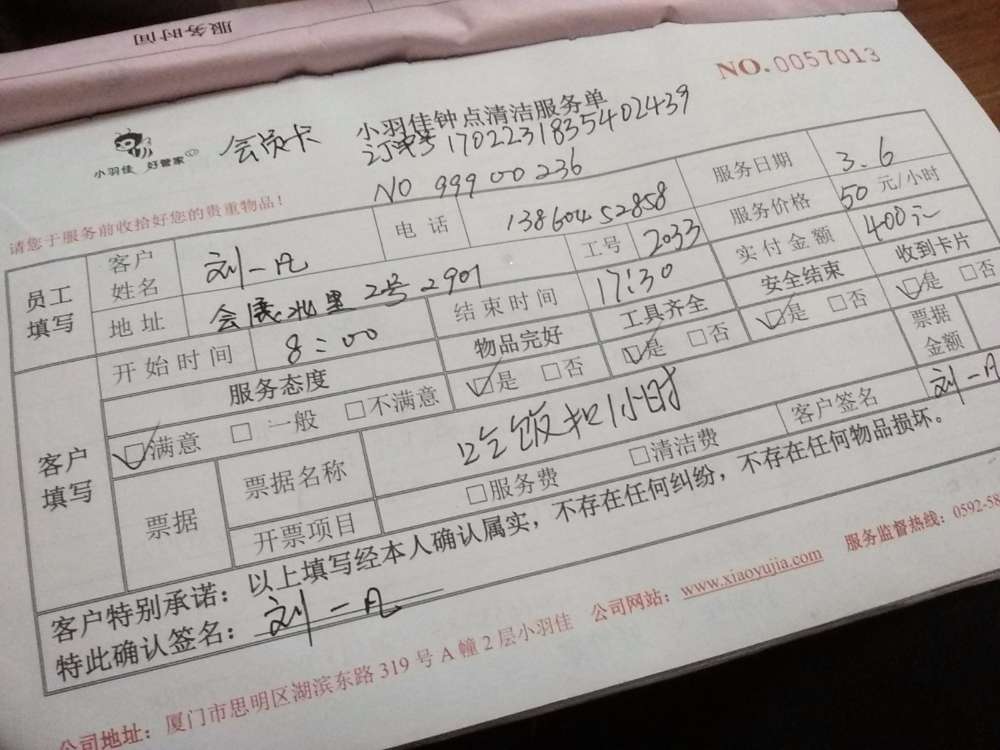 服务时间
NO.0057013
小羽佳 好管家
会员卡
小羽佳钟点清洁服务单
订单号170223183540243​9
NO 99900236
请您于服务前收拾好您的贵重物品!
员工填写
客户姓名 刘一凡 电话 13860452858 服务日期 3.6
地址 会展北里2号2901 工号 2033 服务价格 50 元/小时
开始时间 8:00 结束时间 17:30 实付金额 400元
客户填写
服务态度 物品完好 工具齐全 安全结束 收到卡片
☑满意 □一般 □不满意 ☑是 □否 ☑是 □否 ☑是 □否 ☑是 □否
票据 票据名称 吃饭扣1小时 票据金额
开票项目 □服务费 □清洁费 客户签名 刘一凡
客户特别承诺:以上填写经本人确认属实,不存在任何纠纷,不存在任何物品损坏。
特此确认签名:刘一凡
公司地址:厦门市思明区湖滨东路319号A幢2层小羽佳 公司网站:www.xiaoyujia.com 服务监督热线:0592-58